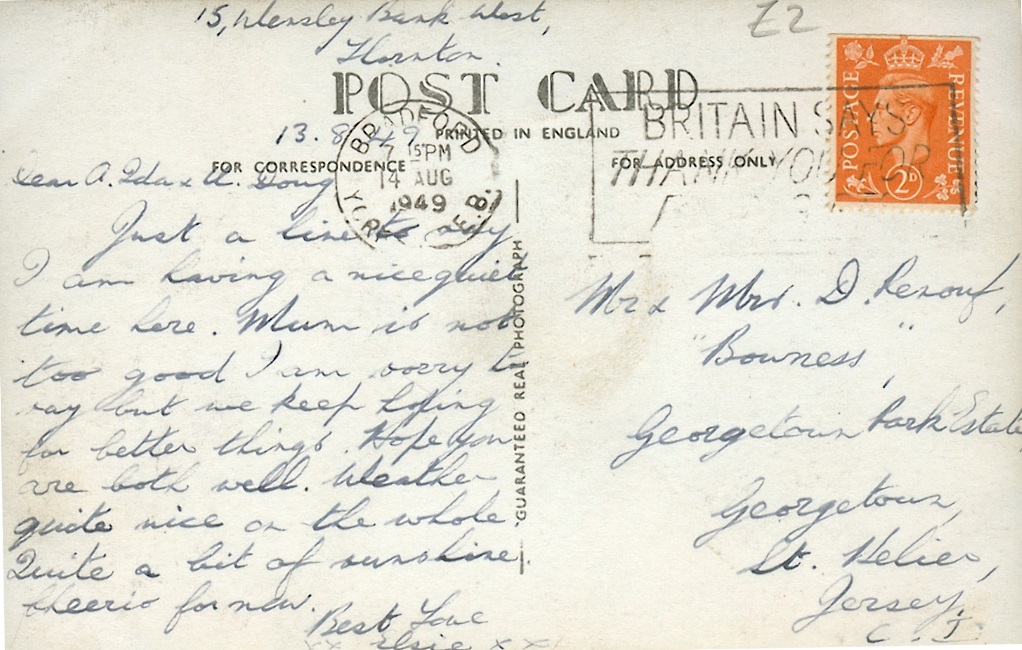 15, Wensley Bank West,
Thornton.
£2
POST CARD
13.8.49.
PRINTED IN ENGLAND
FOR CORRESPONDENCE
FOR ADDRESS ONLY
BRADFORD
7 15 PM
14 AUG
1949
YORK
BRITAIN SAYS
THANK YOU FOR
POSTAGE
REVENUE
2D
Dear A. Ida & U. Doug
Just a line to say
I am having a nice quiet
time here. Mum is not
too good I am sorry to
say but we keep hoping
for better things. Hope you
are both well. Weather
quite nice on the whole
Quite a bit of sunshine.
Cheerio for now.
Best Love
xx Elsie x x
GUARANTEED REAL PHOTOGRAPH
Mr & Mrs. D. Renouf,
"Bowness",
Georgetown Park Estate
Georgetown,
St. Helier,
Jersey,
C. I.